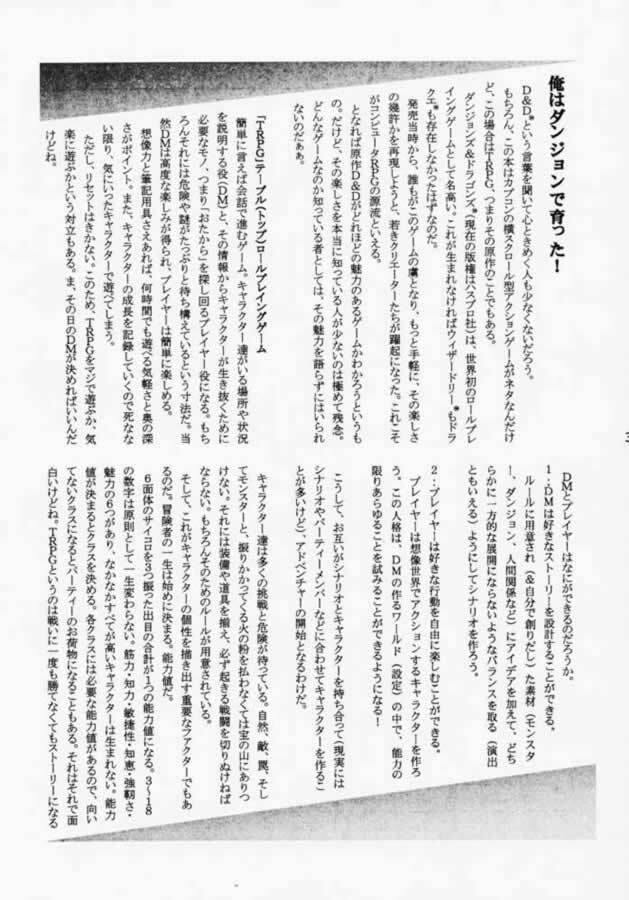 俺はダンジョンで育った!
D&D*という言葉を聞いて心ときめく人も少なくないだろう。
もちろん、この本はカプコンの横スクロール型アクションゲームがネタなんだけ
ど、この場合はTRPG、つまりその原作のことでもある。
ダンジョンズ&ドラゴンズ*(現在の版権はハスブロ社)は、世界初のロールプレ
イングゲームとして名高い。これが生まれなければウィザードリー*もドラ
クエ*も存在しなかったはずなのだ。
発売当時から、誰もがこのゲームの虜となり、もっと手軽に、その楽しさ
の幾許かを再現しようと、若きクリエーターたちが躍起になった。これこそ
がコンピュータRPGの源流といえる。
となれば原作D&Dがどれほどの魅力のあるゲームかわかろうというも
の。だけど、その楽しさを本当に知っている人が少ないのは極めて残念。
どんなゲームなのか知っている者としては、その魅力を語らずにはいられ
ないのだぁぁ。
「TRPG」テーブル(トップ)ロールプレイングゲーム
簡単に言えば会話で進むゲーム。キャラクター達がいる場所や状況
を説明する役(DM)と、その情報からキャラクターが生き抜くために
必要なモノ、つまり「おたから」を探し回るプレイヤー役になる。もち
ろんそれには危険や謎がたっぷりと待ち構えているという寸法だ。当
然DMは高度な楽しみが得られ、プレイヤーは簡単に楽しめる。
想像力と筆記用具さえあれば、何時間でも遊べる気軽さと奥の深
さがポイント。また、キャラクターの成長を記録していくので死なな
い限り、気にいったキャラクターで遊べてしまう。
ただし、リセットはきかない。このため、TRPGをマジで遊ぶか、気
楽に遊ぶかという対立もある。ま、その日のDMが決めればいいんだ
けどね。
DMとプレイヤーはなにができるのだろうか。
1.DMは好きなストーリーを設計することができる。
ルールに用意され(&自分で創りだし)た素材(モンスタ
ー、ダンジョン、人間関係など)にアイデアを加えて、どち
らかに一方的な展開にならないようなバランスを取る(演出
ともいえる)ようにしてシナリオを作ろう。
2.プレイヤーは好きな行動を自由に楽しむことができる。
プレイヤーは想像世界でアクションするキャラクターを作ろ
う。この人格は、DMの作るワールド(設定)の中で、能力の
限りあらゆることを試みることができるようになる!
こうして、お互いがシナリオとキャラクターを持ち合って(現実には
シナリオやパーティーメンバーなどに合わせてキャラクターを作るこ
とが多いけど)、アドベンチャーの開始となるわけだ。
キャラクター達は多くの挑戦と危険が待っている。自然、敵、罠、そし
てモンスターと、振りかかってくる火の粉を払わなくては宝の山にありつ
けない。それには装備や道具を揃え、必ず起きる戦闘を切りぬけねば
ならない。もちろんそのためのルールが用意されている。
そして、これがキャラクターの個性を描き出す重要なファクターでもあ
るのだ。冒険者の一生は始めに決まる。能力値だ。
6面体のサイコロを3つ振った出目の合計が1つの能力値になる。3~18
の数字は原則として一生変わらない。筋力・知力・敏捷性・知恵・強靱さ・
魅力の6つがあり、なかなかすべてが高いキャラクターは生まれない。能力
値が決まるとクラスを決める。各クラスには必要な能力値があるので、向い
てないクラスになるとパーティーのお荷物になることもある。それはそれで面
白いけどね。TRPGというのは戦いに一度も勝てなくてもストーリーになる
3